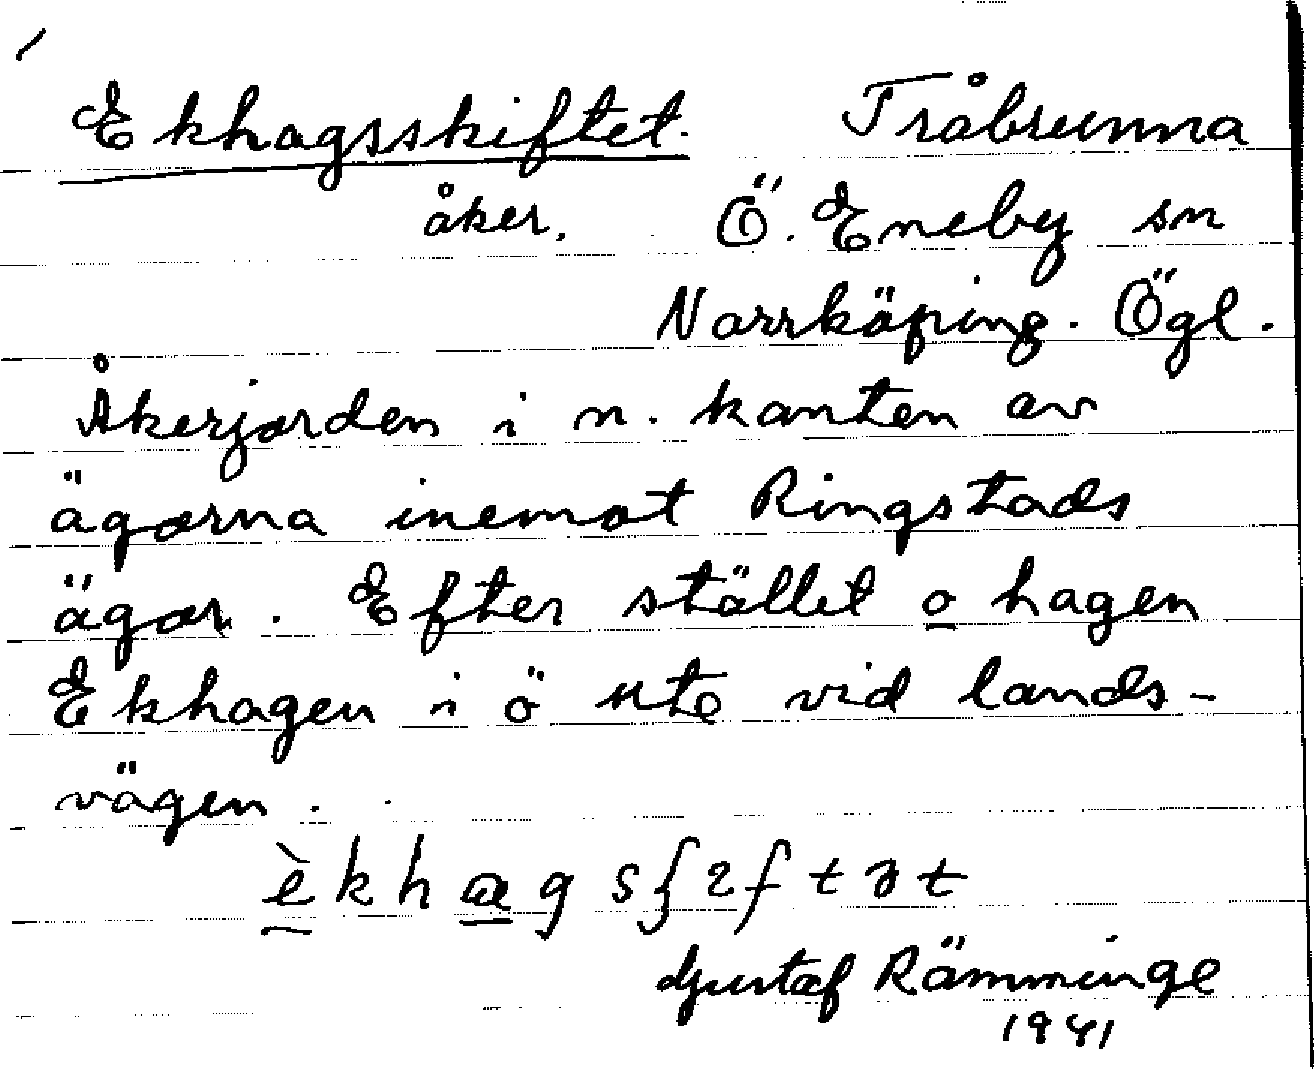 Ekhagsskiftet. Tråbrunna
åker. Ö. Eneby sn
Norrköping. Ögl.
Åkerjorden i n. kanten av
ägorna inemot Ringstads
ägor. Efter stället o hagen
Ekhagen i ö ute vid lands-
vägen.
Gustaf Rämminge
1941